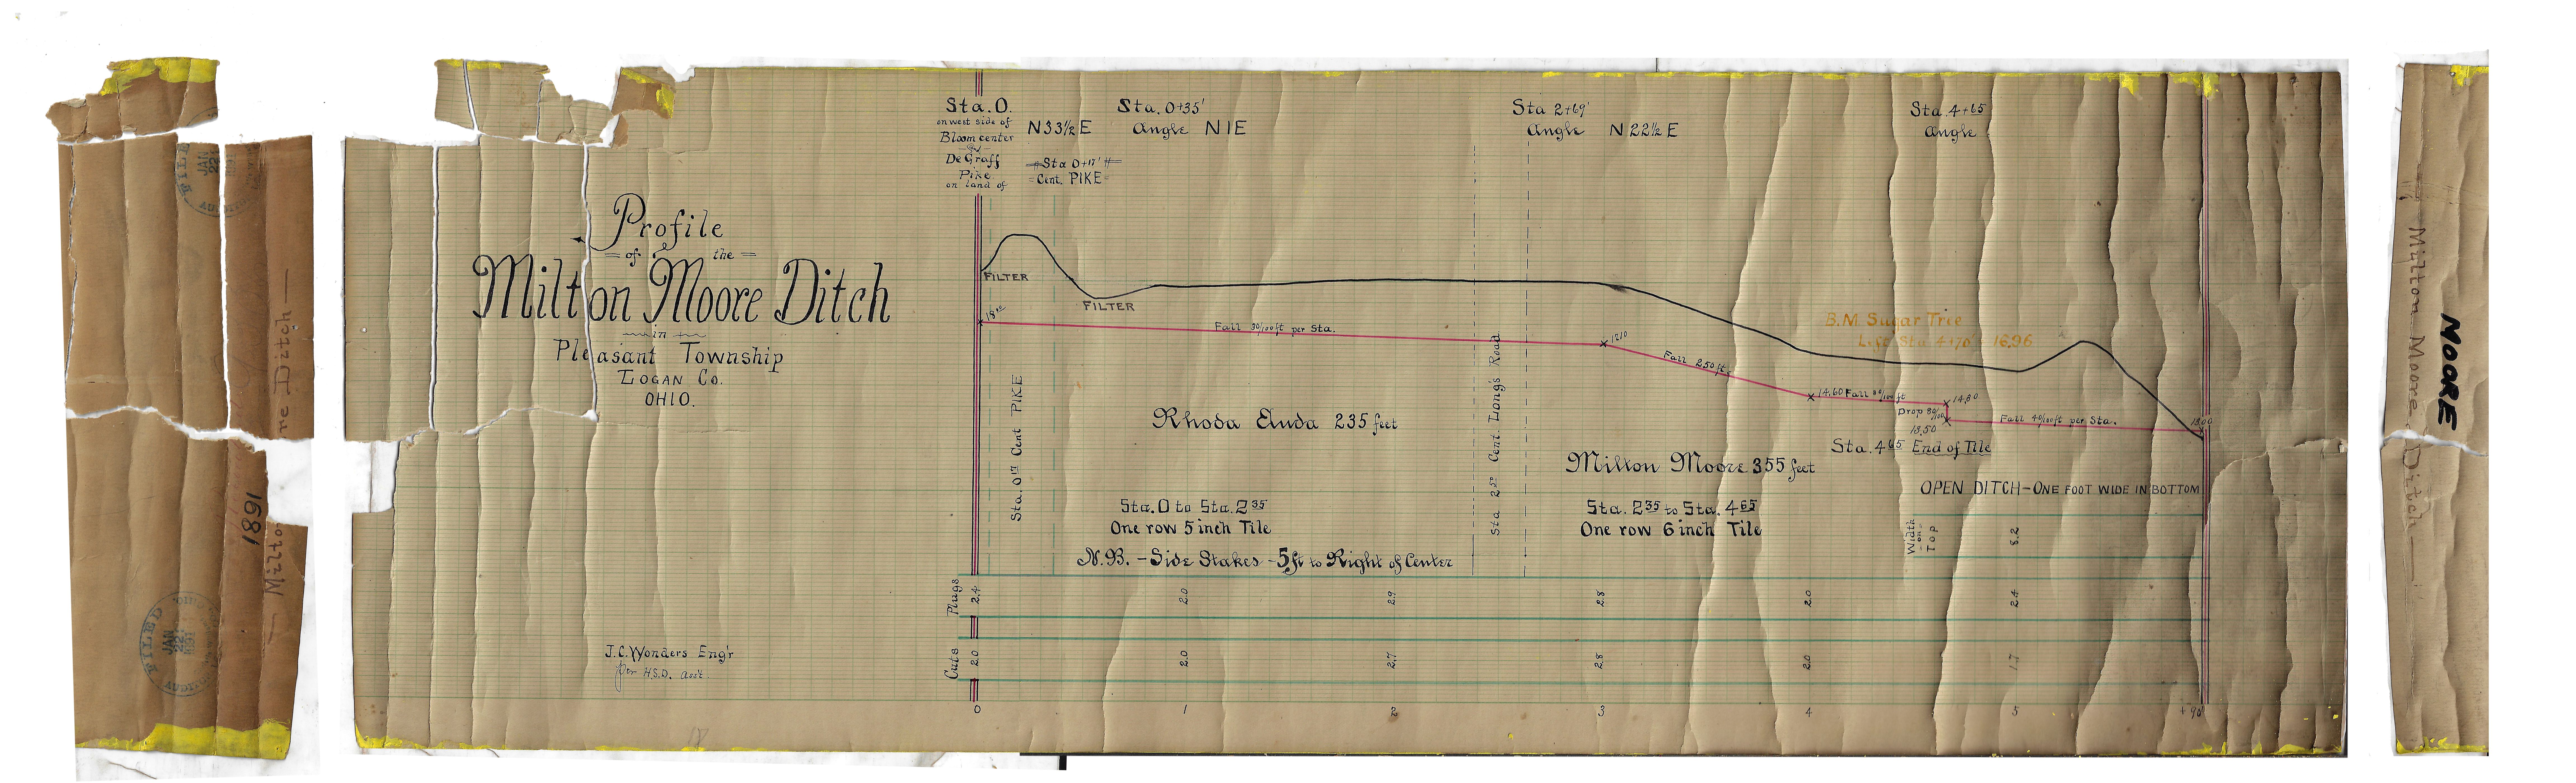 FILED
JAN
22
1891
AUDITOR
ne Ditch —
1891
— Milton
FILED
JAN
22
1891
AUDITOR
Profile
= of the =
Milton Moore Ditch
in
Pleasant Township
LOGAN CO.
OHIO.
J.C. Wonders Eng'r
Per H.S.D. Ass't
Sta. 0.
on west side of
Bloomcenter
and
De Graff
Pike
on land of
N33½E
Sta 0+17'
Cent. PIKE
Sta. 0+35'
Angle N1E
Sta 2+69'
Angle N 22½ E
Sta. 4+65
Angle
FILTER
FILTER
Fall 30/100 ft per Sta.
Fall 2.50 ft
B.M. Sugar Tree
Left Sta 4+70 16.96
14.60 Fall
14.30
Drop 80/100
13.50
Fall 40/100 ft per Sta.
13.00
Sta. 4 65 End of Tile
Sta. 0 17 Cent PIKE
Rhoda Auda 235 feet
Sta. 0 to Sta. 2 35
One row 5 inch Tile
N.B. – Side Stakes – 5 ft to Right of Center
Sta 2 50 Cent. Long's Road
Milton Moore 355 feet
Sta. 2 35 to Sta. 4 65
One row 6 inch Tile
OPEN DITCH – ONE FOOT WIDE IN BOTTOM
Width on Top 8.2
Plugs 2.4 2.0 2.9 2.8 2.0 2.4
Cuts 2.0 2.0 2.7 2.8 2.0 1.7
0 1 2 3 4 5 + 90
— Milton Moore Ditch —
MOORE